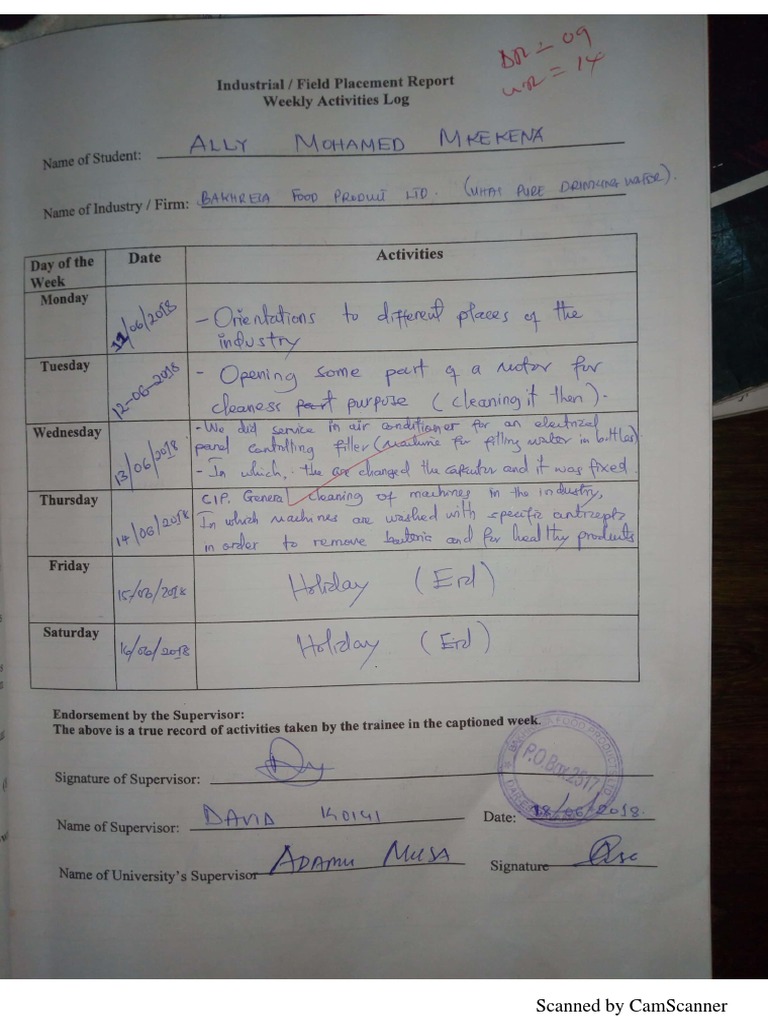 DR = 09
WR = 14
Industrial / Field Placement Report
Weekly Activities Log
Name of Student: ALLY MOHAMED MKEKENA
Name of Industry / Firm: BAKHRESA FOOD PRODUCT LTD. (UHAI PURE DRINKING WATER).
Day of the Week Date Activities
Monday 11/06/2018 - Orientations to different places of the
industry
Tuesday 12-06-2018 - Opening some part of a motor for
cleaness part purpose (cleaning it then).
Wednesday 13/06/2018 - We did service in air conditioner for an electrical
panel controlling filler (machine for filling water in bottles)
- In which, the are changed the capacitor and it was fixed.
Thursday 14/06/2018 CIP. General cleaning of machines in the industry,
In which machines are washed with specific antiscepts
in order to remove bacteria and for healthy products
Friday 15/06/2018 Holiday (Eid)
Saturday 16/06/2018 Holiday (Eid)
Endorsement by the Supervisor:
The above is a true record of activities taken by the trainee in the captioned week.
Signature of Supervisor:
P.O.Box.2517
Name of Supervisor: DAVID Date: 18/06/2018.
Name of University's Supervisor ADAMU MUSA Signature
Scanned by CamScanner